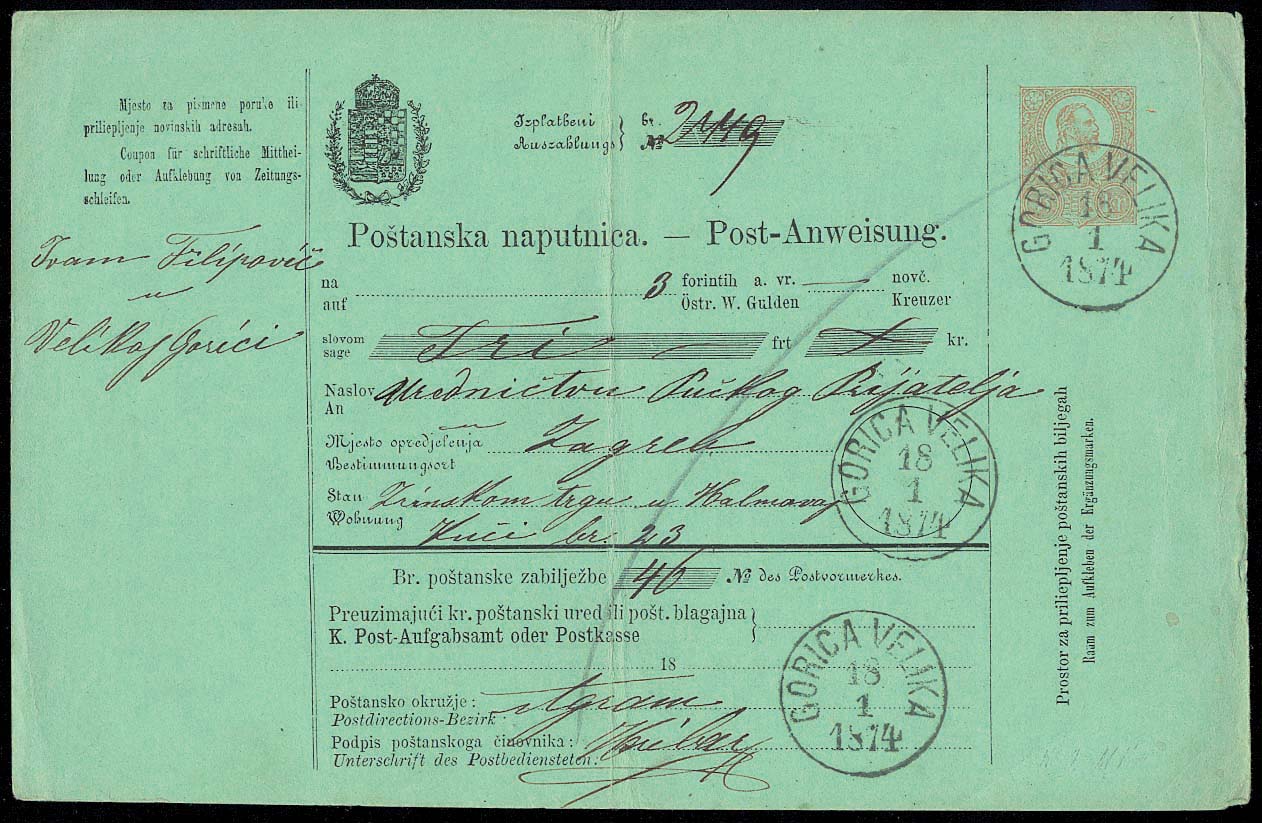 Mjesto za pismene poruke ili
priliepljenje novinskih adresah.
Coupon für schriftliche Mitthei-
lung oder Aufklebung von Zeitungs-
schleifen.
Ivam Filipović
u
Velikoj Gorici
Izplatbeni br.
Auszahlungs № 2449
Poštanska naputnica. — Post-Anweisung.
na 3 forintih a. vr. — novč.
auf Östr. W. Gulden Kreuzer
slovom Tri frt kr.
sage
Naslov Uredničtvu Pučkog Prijatelja
An
Mjesto opredjelenja Zagreb
Bestimmungsort
Stan Zrinskom trgu u
Wohnung Kući br. 23
Br. poštanske zabilježbe 46 № des Postvormerkes.
Preuzimajući kr. poštanski ured ili pošt. blagajna
K. Post-Aufgabsamt oder Postkasse
18
Poštansko okružje: Agram
Postdirections-Bezirk:
Podpis poštanskoga činovnika:
Unterschrift des Postbediensteten:
GORICA VELIKA
18
1
1874
GORICA VELIKA
18
1
1874
GORICA VELIKA
18
1
1874
Prostor za priliepljenje poštanskih biljegah
Raum zum Aufkleben der Ergänzungsmarken.